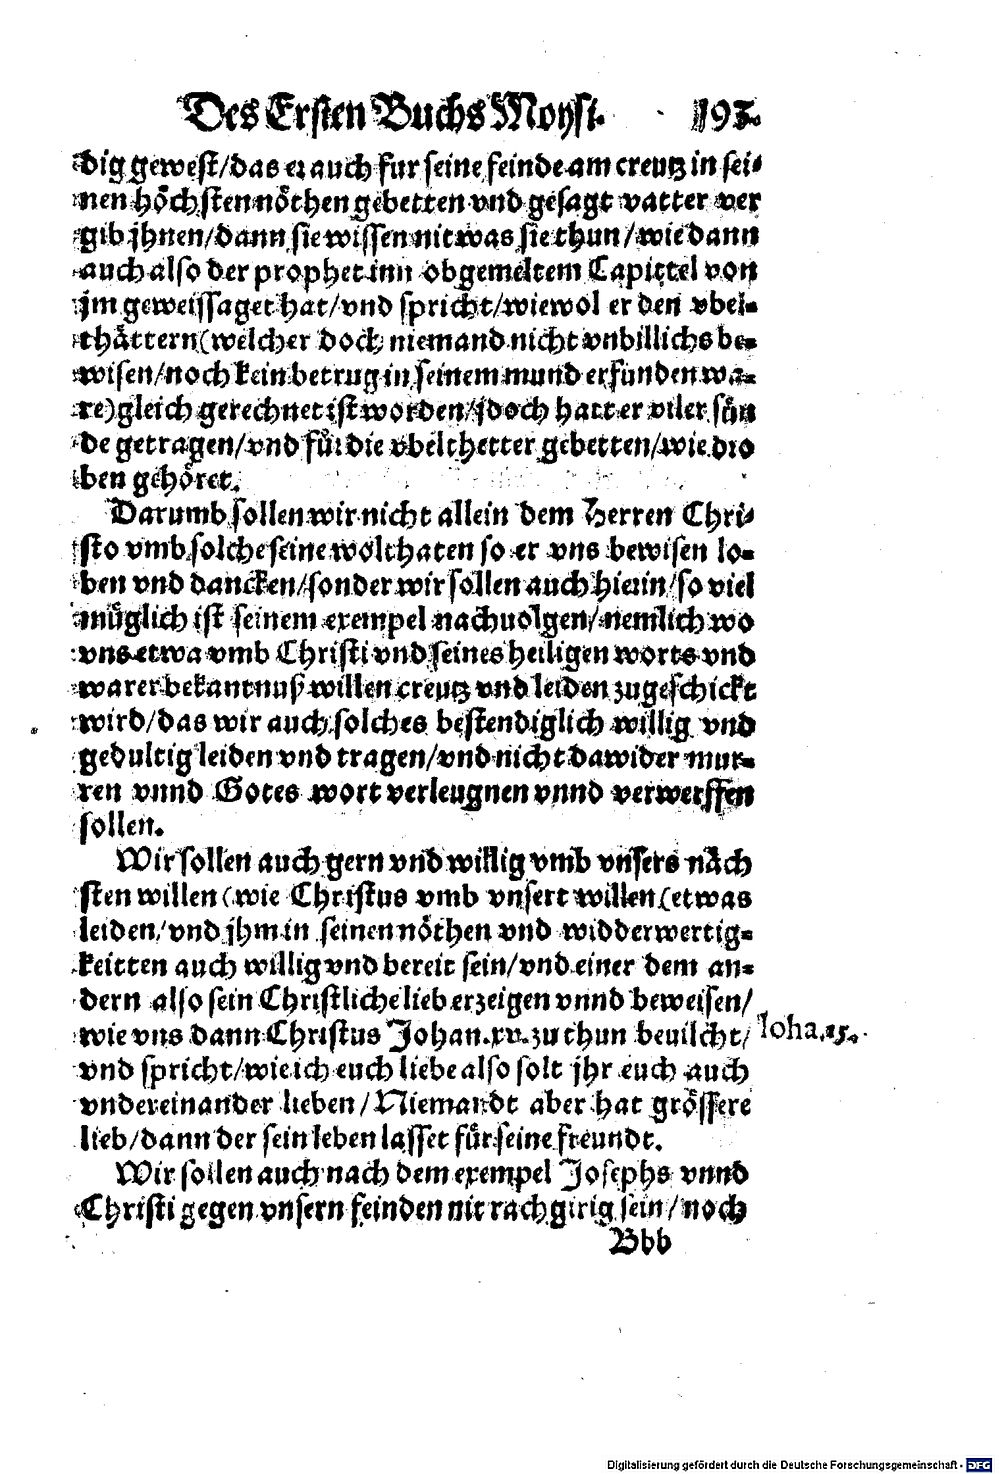 Des Ersten Buchs Moysi. 193.
dig gewest/das er auch fur seine feinde am creutz in sei⸗
nen höchsten nöthen gebetten vnd gesagt vatter ver
gib jhnen/dann sie wissen nit was sie thun/wie dann
auch also der prophet inn obgemeltem Capittel von
jm geweissaget hat/vnd spricht/wiewol er den vbel⸗
thättern (welcher doch niemand nicht vnbillichs be⸗
wisen/noch kein betrug in seinem mund erfunden wa⸗
re) gleich gerechnet ist worden/jdoch hatt er viler sün
de getragen/vnd für die vbelthetter gebetten/wie dro
ben gehöret.
Darumb sollen wir nicht allein dem Herren Chri⸗
sto vmb solche seine wolthaten so er vns bewisen lo⸗
ben vnd dancken/sonder wir sollen auch hierin/so viel
müglich ist seinem exempel nachuolgen/nemlich wo
vns etwa vmb Christi vnd seines heiligen worts vnd
warer bekantnuß willen creutz vnd leiden zugeschickt
wird/das wir auch solches bestendiglich willig vnd
gedultig leiden vnd tragen/vnd nicht dawider mur⸗
ren vnnd Gotes wort verleugnen vnnd verwerffen
sollen.
Wir sollen auch gern vnd willig vmb vnsers näch
sten willen (wie Christus vmb vnsert willen (etwas
leiden/vnd jhm in seinen nöthen vnd widderwertig⸗
keitten auch willig vnd bereit sein/vnd einer dem an⸗
dern also sein Christliche lieb erzeigen vnnd beweisen/
wie vns dann Christus Johan.xv. zu thun beuilcht/
Joha.15.
vnd spricht/wie ich euch liebe also solt jhr euch auch
vndereinander lieben/Niemandt aber hat grössere
lieb/dann der sein leben lasset für seine freundt.
Wir sollen auch nach dem exempel Josephs vnnd
Christi gegen vnsern feinden nit rachgirig sein/noch
Bbb
Digitalisierung gefördert durch die Deutsche Forschungsgemeinschaft - DFG